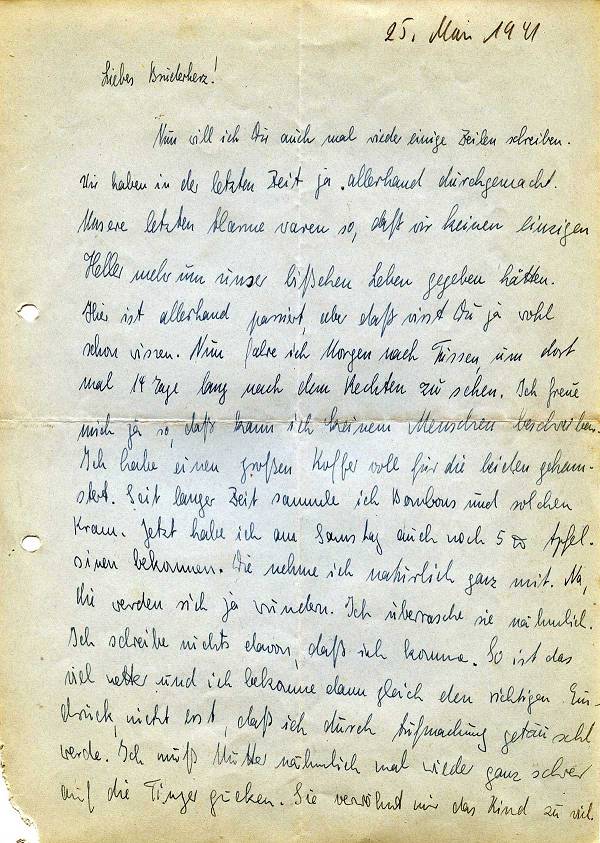 25. Mai 1941
Liebes Bruderherz!
Nun will ich Du auch mal wieder einige Zeilen schreiben.
Wir haben in der letzten Zeit ja allerhand durchgemacht.
Unsere letzten Alarme waren so, daß wir keinen einzigen
Heller mehr um unser bißchen Leben gegeben hätten.
Hier ist allerhand passiert, aber daß wisst Du ja wohl
schon wissen. Nun fahre ich Morgen nach Füssen, um dort
mal 14 Tage lang nach dem Rechten zu sehen. Ich freue
mich ja so, daß kann ich keinem Menschen beschreiben.
Ich habe einen großen Koffer voll für die beiden geham-
stert. Seit langer Zeit sammle ich Bonbons und solchen
Kram. Jetzt habe ich am Samstag auch noch 5 ℔ Apfel-
sinen bekommen. Die nehme ich natürlich ganz mit. Na,
die werden sich ja wundern. Ich überrasche sie nähmlich.
Ich schreibe nichts davon, daß ich komme. So ist das
viel netter und ich bekomme dann gleich den richtigen Ein-
druck, nicht erst, daß ich durch Aufmachung getäuscht
werde. Ich muß Mutter nähmlich mal wieder ganz schwer
auf die Finger gucken. Sie verwöhnt mir das Kind zu viel.